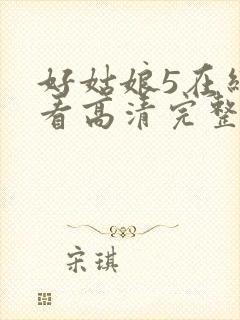 好姑娘5在线
看高清完整
宋琪